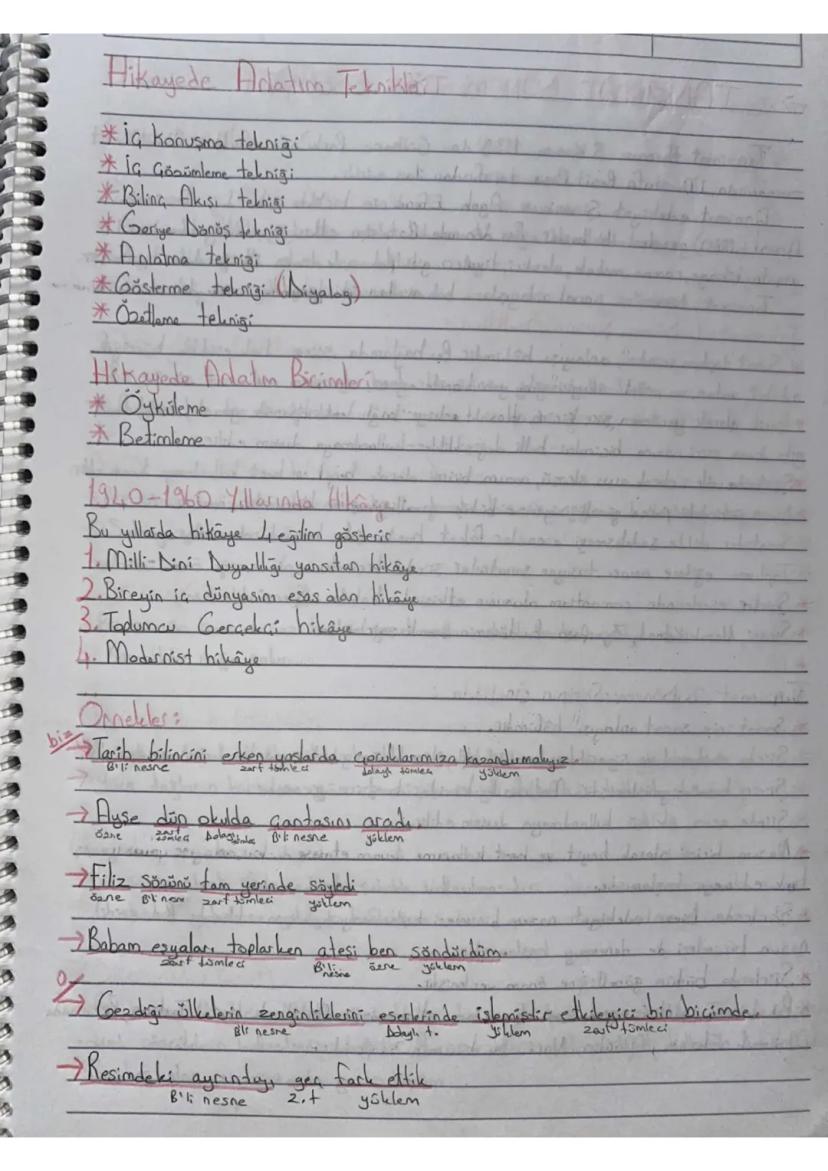 Hikayede Anlatım Teknikleri
* İç konuşma tekniği
* İç Çözümleme tekniği
* Bilinç Akışı tekniği
* Geriye Dönüş tekniği
* Anlatma tekniği
* Gösterme tekniği (Diyalog)
* Özetleme tekniği
Hikayede Anlatım Biçimleri
* Öyküleme
* Betimleme
1940-1960 Yıllarında Hikâye
Bu yıllarda hikâye 4 eğilim gösterir
1. Milli-Dini Duyarlılığı yansıtan hikâye
2. Bireyin iç dünyasını esas alan hikâye
3. Toplumcu Gerçekçi hikâye
4. Modernist hikâye
Örnekler:
biz
→ Tarih bilincini erken yaşlarda çocuklarımıza kazandırmalıyız.
B'li nesne zarf tümleci dolaylı tümleç yüklem
→ Ayşe dün okulda çantasını aradı.
özne zarf tümleci Dolaylı tümleç B'li nesne yüklem
→ Filiz sözünü tam yerinde söyledi
özne B'li nesne zarf tümleci yüklem
→ Babam eşyaları toplarken ateşi ben söndürdüm.
zarf tümleci B'li nesne özne yüklem
O
→ Gezdiği ülkelerin zenginliklerini eserlerinde işlemiştir etkileyici bir biçimde.
B'li nesne Dolaylı t. yüklem zarf tümleci
→ Resimdeki ayrıntıyı geç fark ettik
B'li nesne z.t yüklem